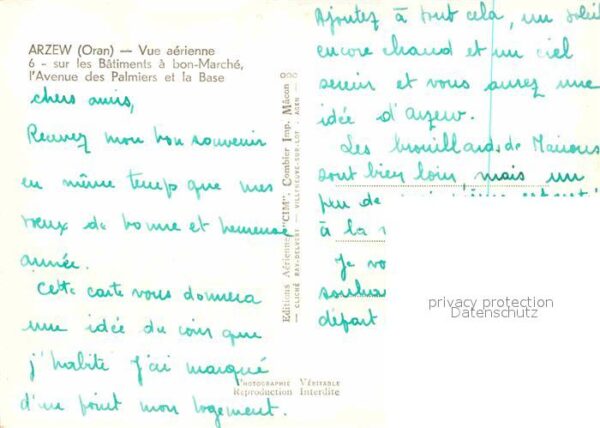 ARZEW (Oran) — Vue aérienne
6 - sur les Bâtiments à bon-Marché,
l'Avenue des Palmiers et la Base
chers amis,
Recevez mon bon souvenir
en même temps que mes
vœux de bonne et heureuse
année.
Cette carte vous donnera
une idée du coin que
j'habite J'ai marqué
d'un point mon logement.
Editions Aériennes "CIM", Combier Imp. Mâcon
— CLICHÉ RAY-DELVERT — VILLENEUVE-SUR-LOT - AGEN —
PHOTOGRAPHIE VÉRITABLE
Reproduction Interdite
Ajoutez à tout cela, un soleil
encore chaud et un ciel
serein et vous aurez une
idée d'Arzew.
Les brouillards de
sont bien loin mais un
peu de
à la
Je vo
souha
départ
privacy protection
Datenschutz